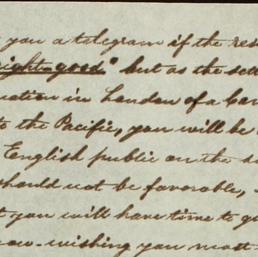 you a telegram if the res
right good" but as the sett
uation in London of a Can
to the Pacific, you will be
English public on the s
should not be favorable,
t you will have time to g
now - wishing you most